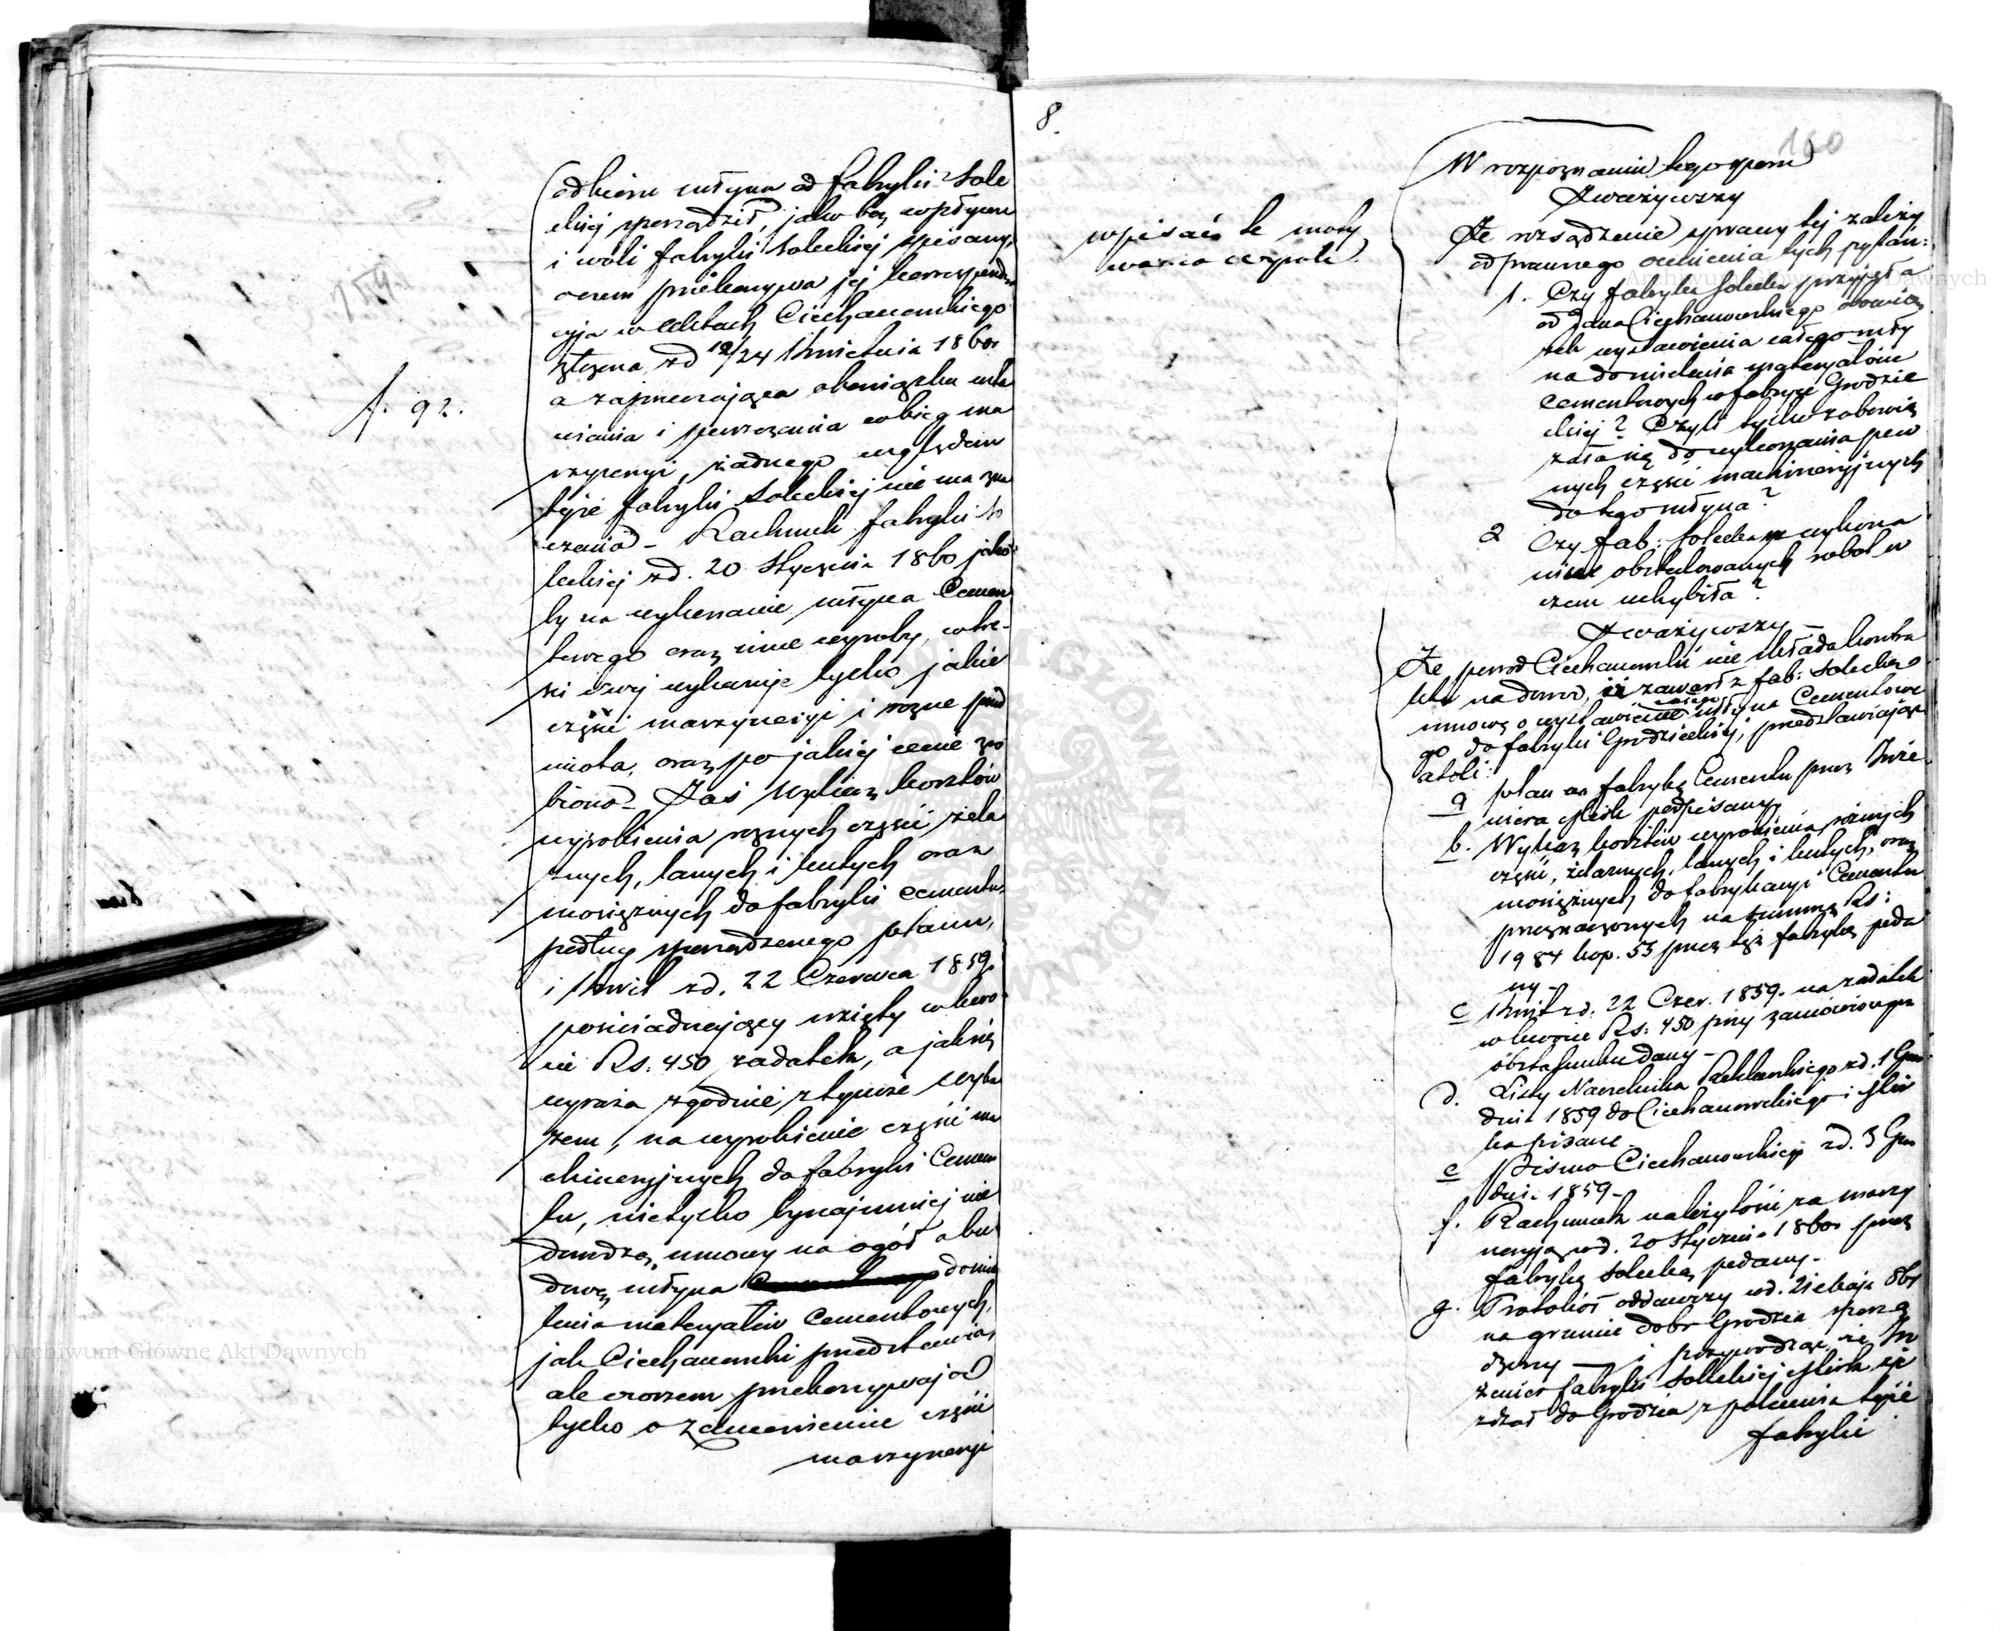 odbioru młyna od fabryki Sole
ckiej sporządził, jako bez wpływu
i woli fabryki Soleckiej spisany,
owem przekonywa jej korrespenden
cyja w aktach Ciechanowskiego
złożona, z d 12/24 Kwietnia 1860r
a zajmująca obowiązku usta
wiania i puszczania w bieg ma
szyneryi, żadnego względem
tejże fabryki Soleckiej nie ma zna
czenia - Rachunek fabryki So
leckiej z d. 20 Stycznia 1860 jako
by na wykonanie młyna Cemen
towego oraz inne wyroby, w tre-
ści swej wykazuje tylko jakie
części maszyneryi i rożne przed
miota, oraz po jakiej cenie zro
biono - Zaś Wykaz kosztów
wyrobienia rożnych części żela
znych, lanych i kutych oraz
mosiężnych do fabryki cementu,
podług sporządzonego planu,
i Kwit z d. 22 Czerwca 1859
poświadczający wzięty w kwo
cie Rs: 450 zadatek, a jak się
wyraża zgodnie z tymże Wyka
zem, na wyrobienie części ma
chineryjnych do fabryki Cemen
tu, nietylko bynajmniej nie
dowodzą umowy na ogół o bu
dowę młyna domie
lenia materyałów Cementowych,
jak Ciechanowski przedstawia,
ale owszem przekonywają
tylko o zamowienie części
maszyneryi
f. 92.
8.
160
wpisać te moty
wa co do
W rozpoznaniu tego sporu
Zważywszy
Że rozsądzenie sprawy tej zależy
od prawnego ocenienia tych pytań:
1. Czy fabryka Solecka przyjęła
od Jana Ciechanowskiego obowią
zek wystawienia całego mły
na do mielenia materyałów
cementowych w fabryce Grodzie
ckiej? Czyli tylko zobowią
zała się do wykonania pew
nych części machineryjnych
do tego młyna?
2 Czy fab: Solecka w wykona
niu obstalowanych robot w
czem uchybiła?
Zważywszy -
Że powod Ciechanowski nie składa kontra
ktu na dowod, iż zawarł z fab: Solecką
umowę o wystawienie całego młyna Cementowe
go do fabryki Grodzieckiej, przedstawiając
atoli:
a plan na fabrykę Cementu przez Inże
niera podpisany
b. Wykaz kosztów wyrobienia rożnych
części, żelaznych, lanych i kutych, oraz
mosiężnych do fabrykacyi Cementu
przeznaczonych na summę Rs:
1984 kop. 53 przez tęż fabrykę poda
ny -
c Kwit z d. 22 Czer. 1859. na zadatek
w kwocie Rs: 450 przy zamówionym
obstalunku dany -
d. Listy Naczelnika z d. 1 Gru
dnia 1859 do Ciechanowskiego i
pisane -
e Pismo Ciechanowskiego z d. 3 Gru
dnia 1859 -
f. Rachunek należytości za maszy
neryją z d. 20 Stycznia 1860r przez
fabrykę Solecką podany -
g. Protokoł oddawczy z d. 21 Maja 861
na gruncie dobr Grodzca sporzą
dzony - i przywodząc, że In
żenier fabryki Soleckiej zje
zdzał do Grodzca z polecenia tejże
fabryki
Archiwum Główne Akt Dawnych